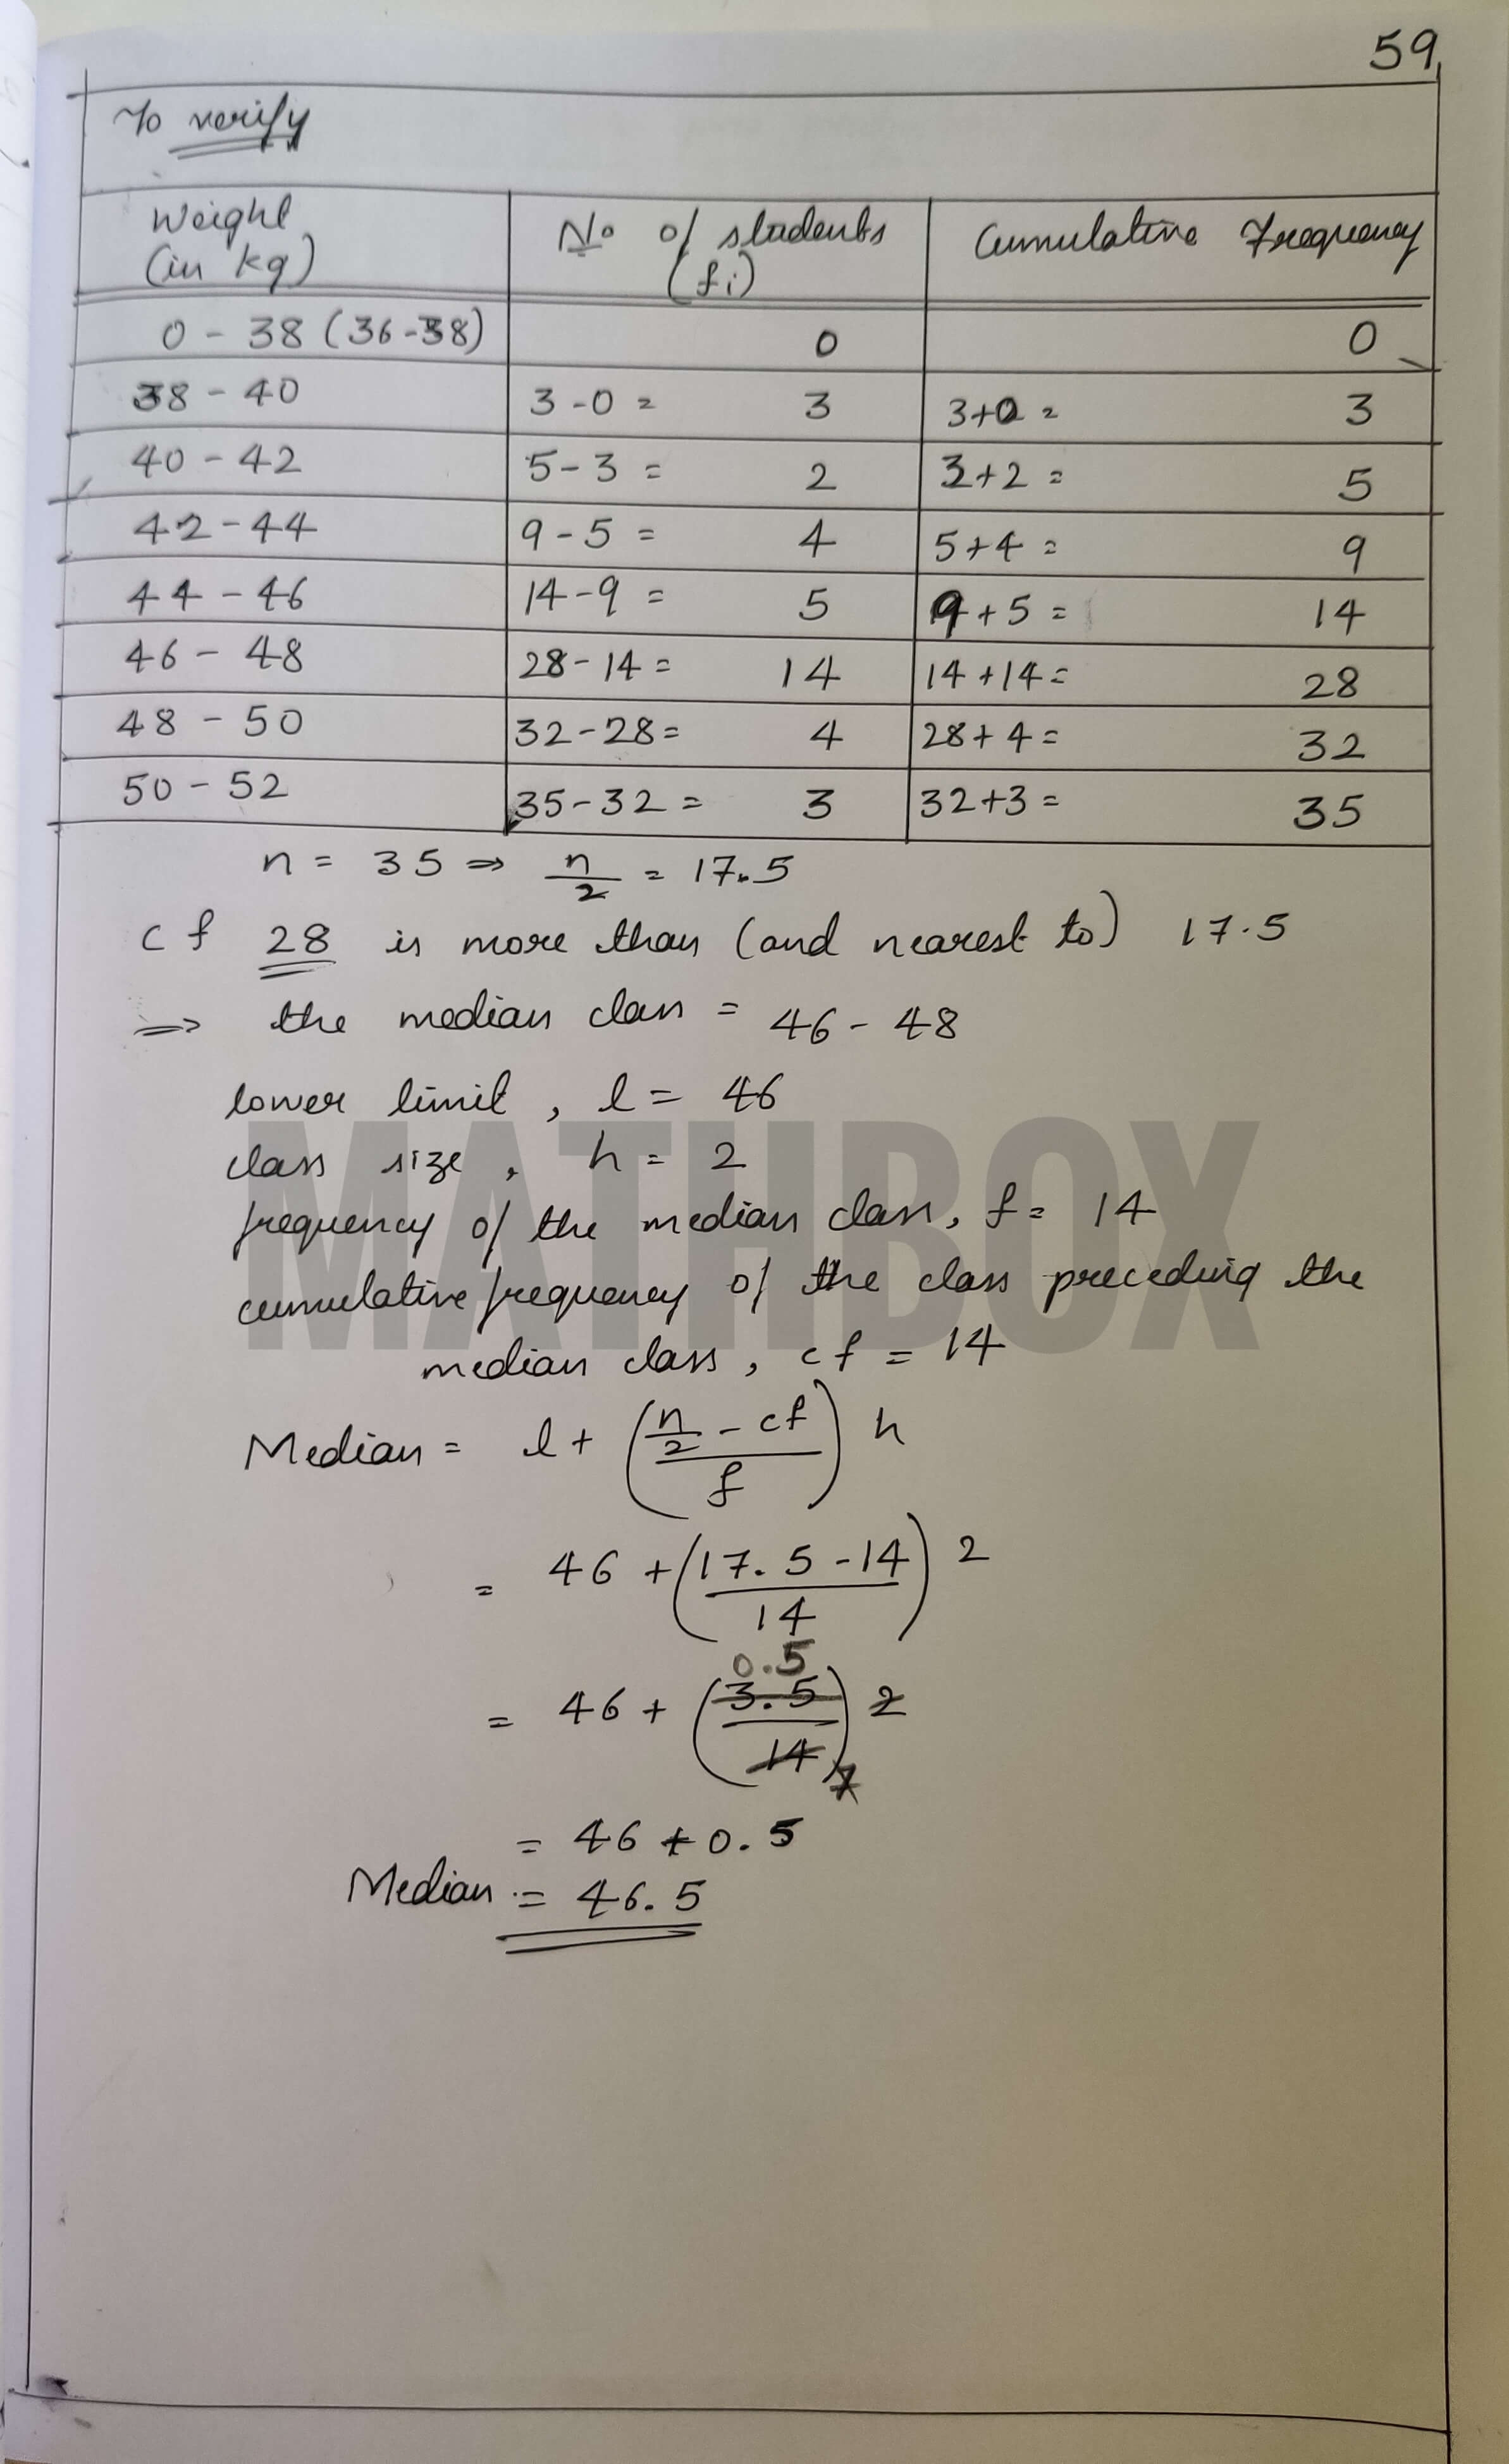 59
To verify
Weight (in kg) No of students (fi) Cumulative Frequency
0 - 38 (36-38) 0 0
38 - 40 3 - 0 = 3 3+0 = 3
40 - 42 5 - 3 = 2 3+2 = 5
42 - 44 9 - 5 = 4 5+4 = 9
44 - 46 14 - 9 = 5 9+5 = 14
46 - 48 28 - 14 = 14 14+14 = 28
48 - 50 32 - 28 = 4 28+4 = 32
50 - 52 35 - 32 = 3 32+3 = 35
n = 35 ⇒ n/2 = 17.5
cf 28 is more than (and nearest to) 17.5
⇒ the median class = 46 - 48
lower limit, l = 46
class size, h = 2
frequency of the median class, f = 14
cumulative frequency of the class preceding the
median class, cf = 14
MATHBOX
Median = l + ((n/2 - cf)/f) h
= 46 + ((17.5 - 14)/14) 2
0.5
= 46 + (3.5/14) 2
7
= 46 + 0.5
Median = 46.5